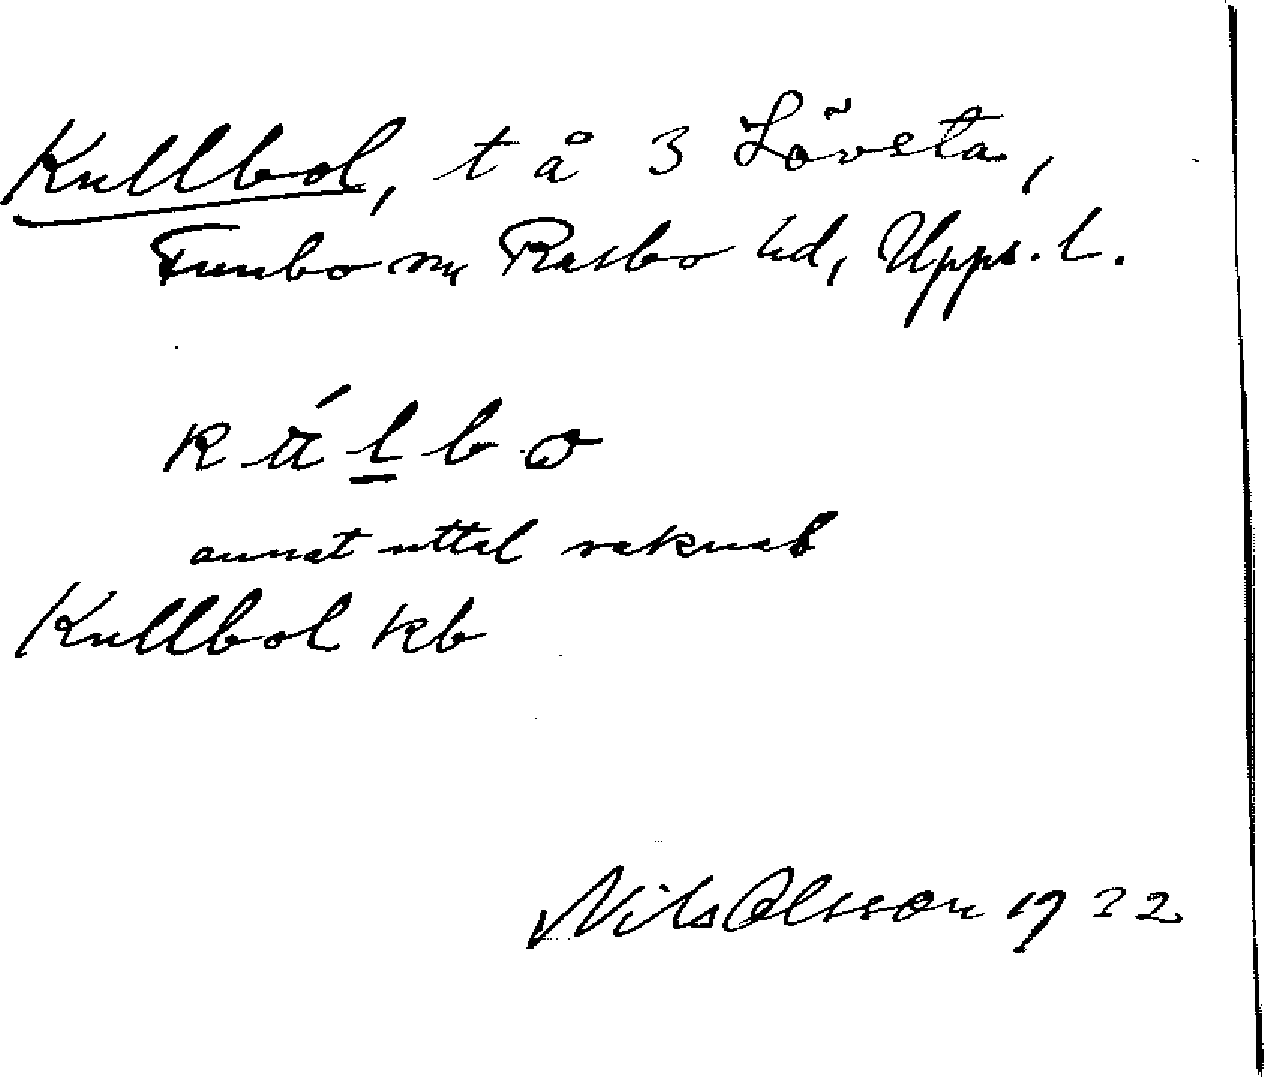 Kullbol, t å 3 Lövsta,
Funbo sn, Rasbo hd, Upps. l.
annat uttal saknas
Kullbol kb
Nils Olsson 1922